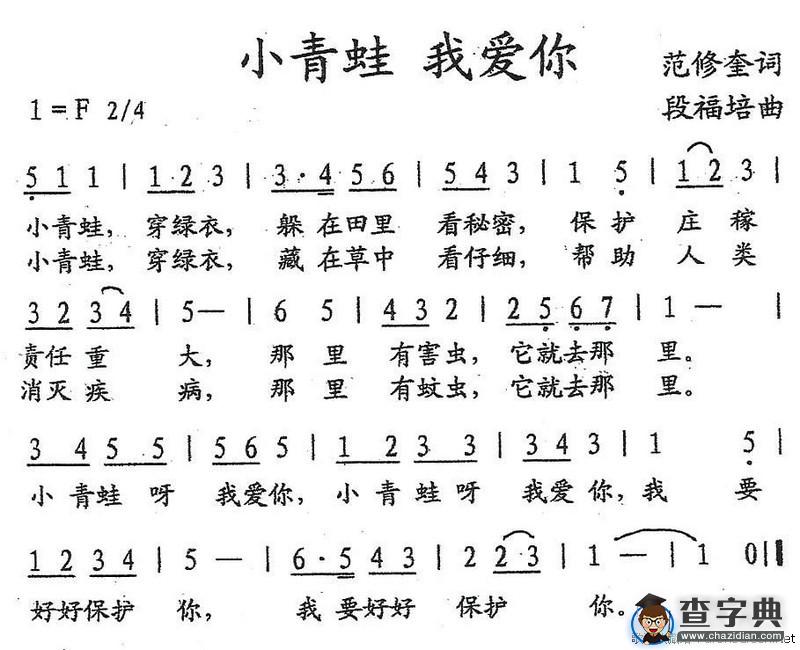 小青蛙 我爱你
范修奎词
1=F 2/4
段福培曲
5 1 1 | 1 2 3 | 3·4 5 6 | 5 4 3 | 1 5 | 1 2 3 |
小青蛙，穿绿衣，躲在田里 看秘密，保护 庄稼
小青蛙，穿绿衣，藏在草中 看仔细，帮助 人类
3 2 3 4 | 5— | 6 5 | 4 3 2 | 2 5 6 7 | 1 — |
责任重 大，那里 有害虫，它就去那 里。
消灭疾 病，那里 有蚊虫，它就去那 里。
3 4 5 5 | 5 6 5 | 1 2 3 3 | 3 4 3 | 1 5 |
小青蛙呀 我爱你，小青蛙呀 我爱你，我 要
1 2 3 4 | 5 — | 6·5 4 3 | 2 2 3 | 1 — | 1 0 ||
好好保护 你，我要好好 保护 你。
查字典
www.chazidian.com